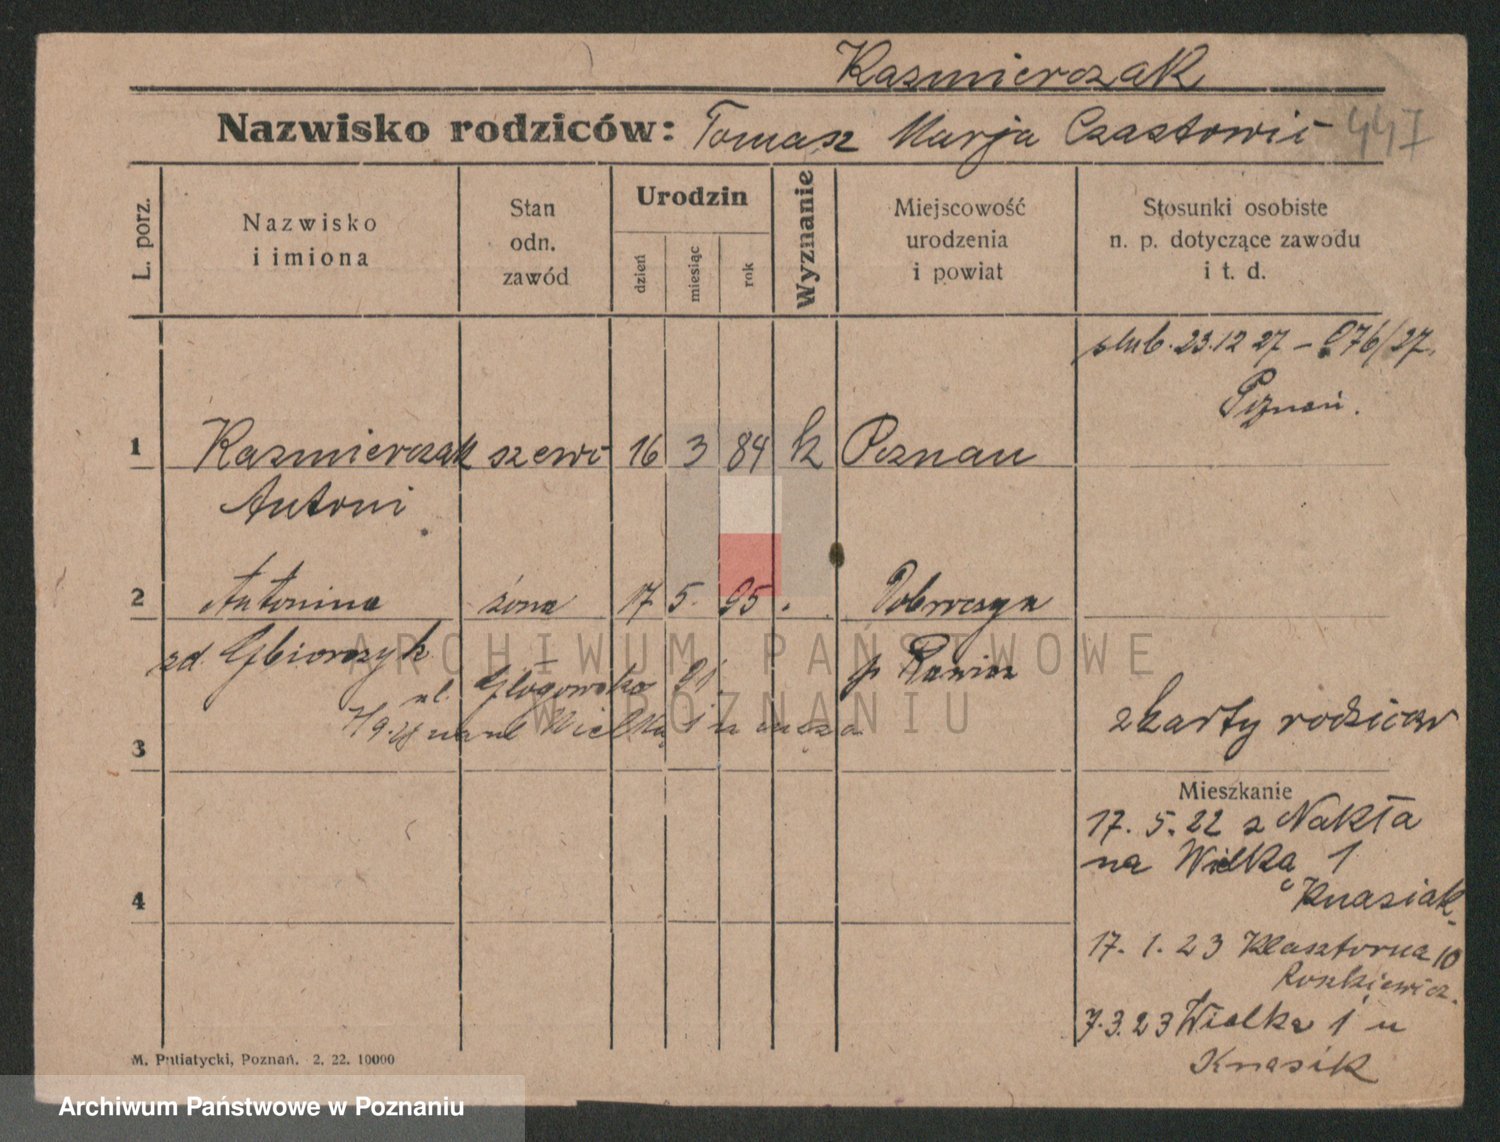 Kazmierczak
Nazwisko rodziców: Tomasz Marja Czastowić 447
L. porz.
Nazwisko
i imiona
Stan
odn.
zawód
Urodzin
dzień
miesiąc
rok
Wyznanie
Miejscowość
urodzenia
i powiat
Stosunki osobiste
n. p. dotyczące zawodu
i t. d.
ślub. 23.12 27 – 976/27.
Poznań.
1 Kazmierczak szewc 16 3 84 k Poznau
Antoni
2 Antonina żona 17 5. 95 Dobrczyn
zd. Gbiorczyk p Rawicz
ul. Głogowska 91
Wielka 1 u męża
3
z karty rodziców
Mieszkanie
17. 5. 22 z Nakła
na Wielką 1
Knasiak
4
17. 1. 23 Klasztorna 10
7.3.23 Wielka 1 u
Knasik
M. Putiatycki, Poznań. 2. 22. 10000
ARCHIWUM PAŃSTWOWE
W POZNANIU
Archiwum Państwowe w Poznaniu